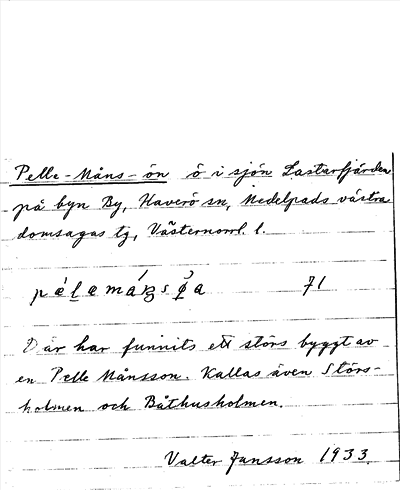 Pelle-Måns-ön ö i sjön Lastarfjärden
på byn By, Haverö sn, Medelpads västra
domsagas tg, Västernorrl. l.
71
Där har funnits ett störs byggt av
en Pelle Månsson. Kallas även Störs-
holmen och Båthusholmen.
Valter Jansson 1933.